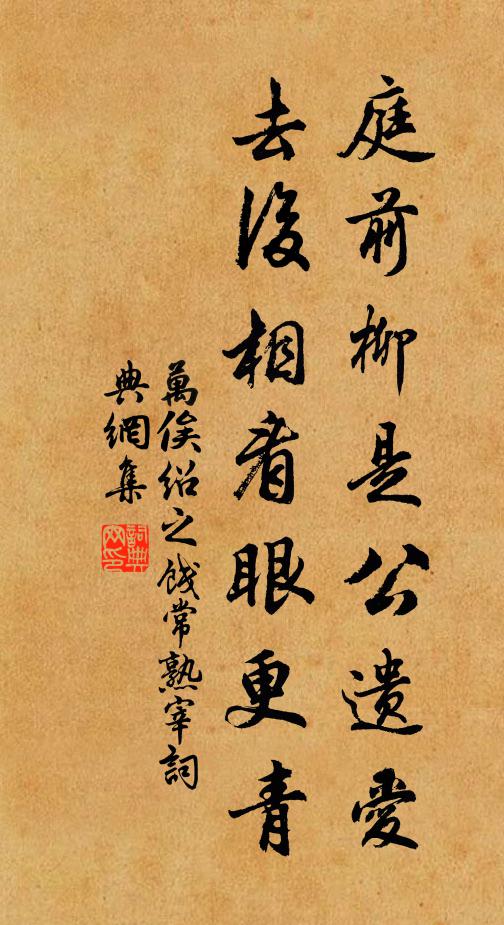 庭前柳是公遺愛
去後相看眼更青
萬俟紹之餞常熟宰詞
典網集
詞典网印